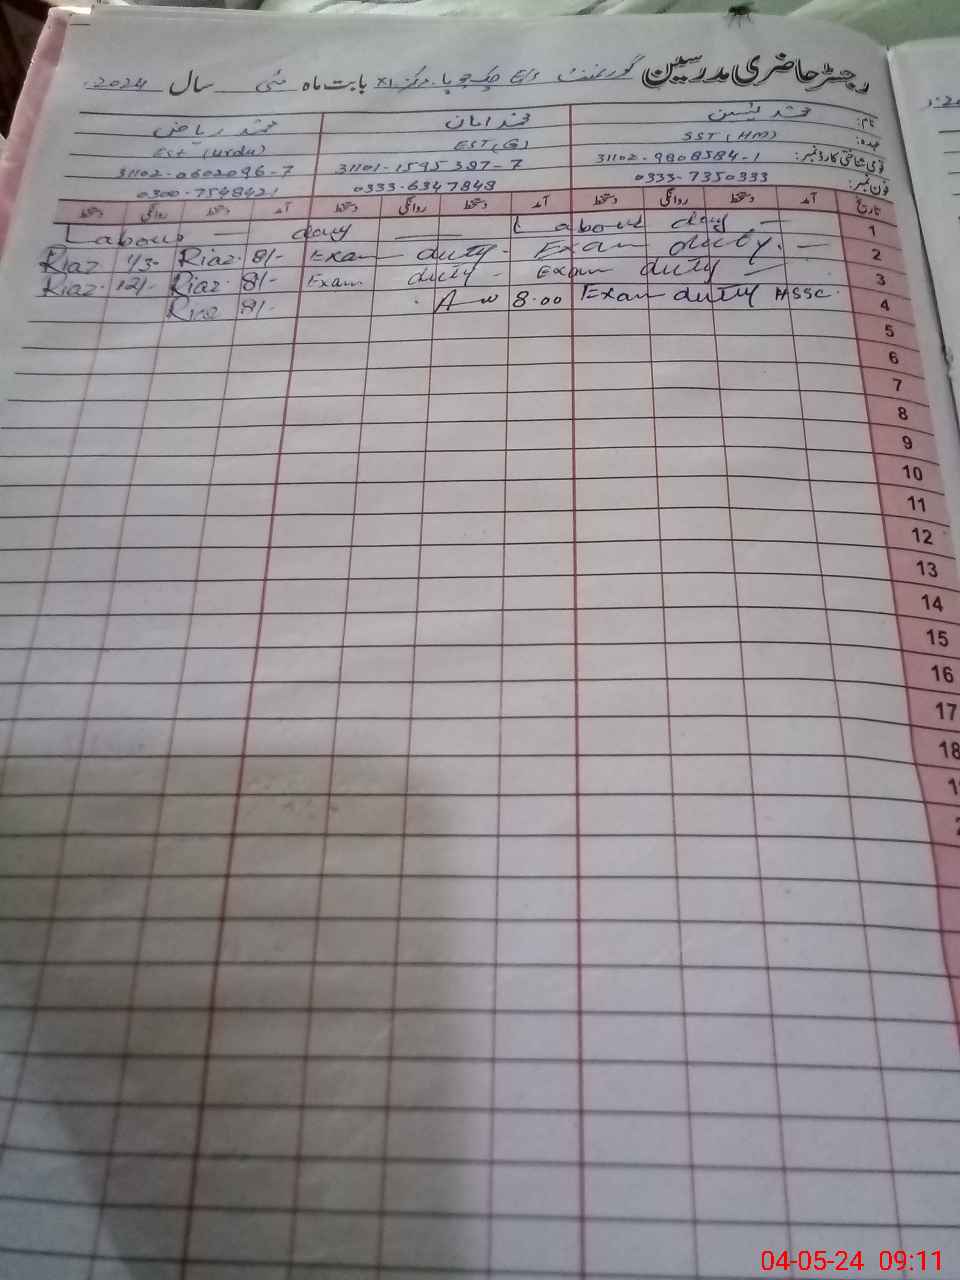 رجسٹر حاضری مدرسین گورنمنٹ بابت ماہ مئی سال 2024
نام: محمد یٰسین محمد امان محمد ریاض
عہدہ: SST (HM) EST (G) Est (urdu)
قومی شناختی کارڈ نمبر: 31102-9808584-1 31101-1595387-7 31102-0602096-7
فون نمبر: 0333-7350333 0333-6347848 0300-7548421
تاریخ آمد دستخط روانگی دستخط آمد دستخط روانگی دستخط آمد دستخط روانگی دستخط
1 Labour day Labour day
2 Exam duty Exam duty 8/- Riaz 1/3- Riaz
3 Exam duty Exam duty 8/- Riaz 12/- Riaz
4 Exam duty HSSC 8.00 8/- Riaz
5
6
7
8
9
10
11
12
13
14
15
16
17
18
04-05-24 09:11